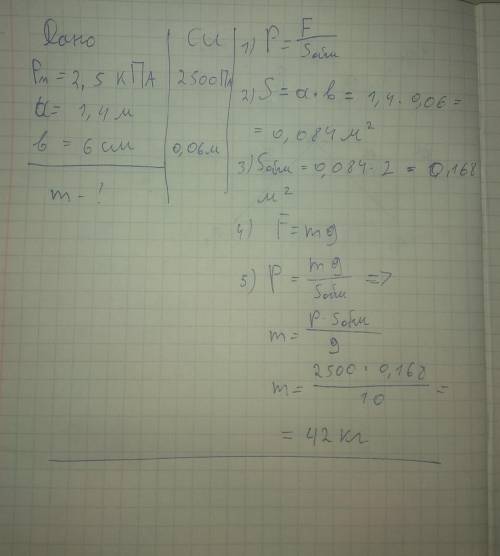 Дано
СИ
Pт = 2,5 кПА
2500 Па
a = 1,4 м
b = 6 см
0,06 м
m - ?
1) P = F / Sобщ
2) S = a · b = 1,4 · 0,06 =
= 0,084 м²
3) Sобщ = 0,084 · 2 = 0,168
м²
4) F = mg
5) P = mg / Sобщ =>
m = P · Sобщ / g
m = 2500 · 0,168 / 10 =
= 42 кг